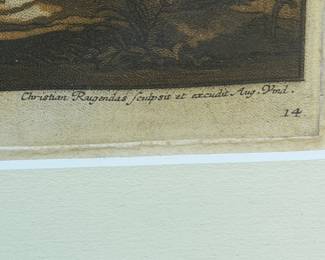 Christian Rugendas sculpsit et excudit Aug. Vind.
14